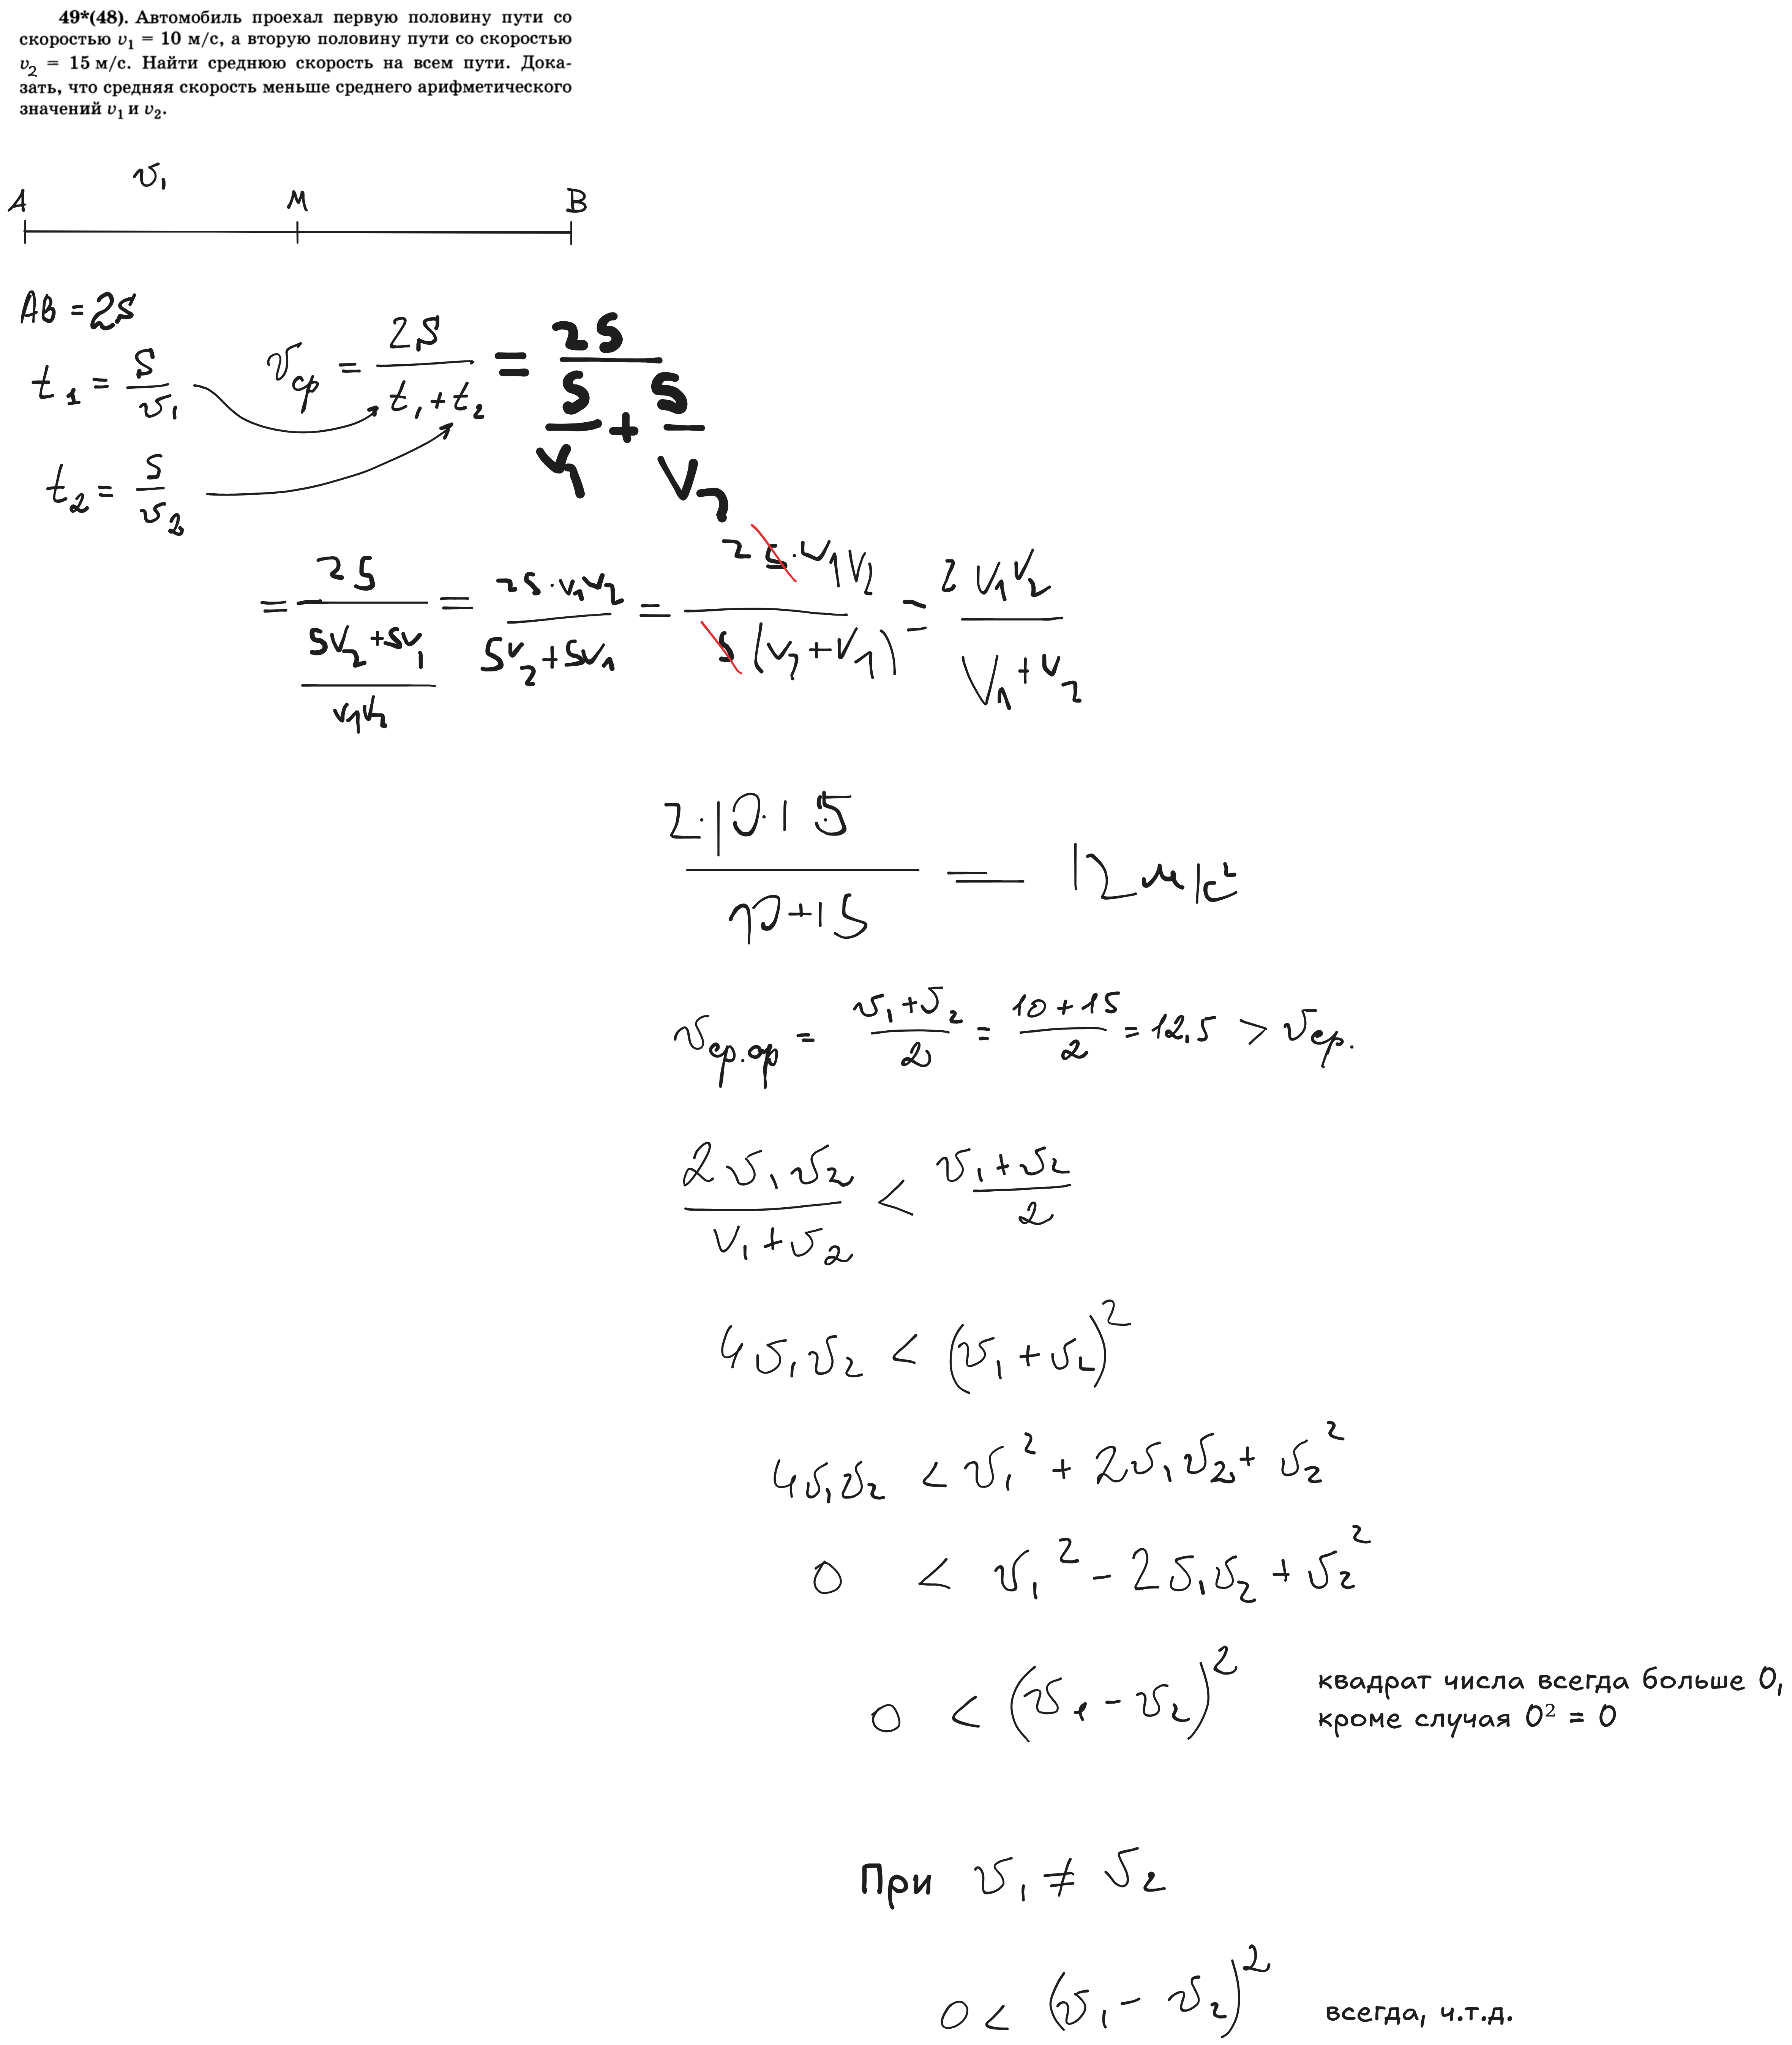 49*(48). Автомобиль проехал первую половину пути со
скоростью v₁ = 10 м/с, а вторую половину пути со скоростью
v₂ = 15 м/с. Найти среднюю скорость на всем пути. Дока-
зать, что средняя скорость меньше среднего арифметического
значений v₁ и v₂.
v₁
A M B
AB = 2S
t₁ = S/v₁
v_ср = 2S/(t₁ + t₂) = 2S/(S/v₁ + S/v₂)
t₂ = S/v₂
= 2S/((Sv₂ + Sv₁)/(v₁v₂)) = (2S · v₁v₂)/(Sv₂ + Sv₁) = (2S · v₁v₂)/(S(v₂ + v₁)) = 2v₁v₂/(v₁ + v₂)
(2 · 10 · 15)/(10 + 15) = 12 м/с²
v_ср.ар = (v₁ + v₂)/2 = (10 + 15)/2 = 12,5 > v_ср.
2v₁v₂/(v₁ + v₂) < (v₁ + v₂)/2
4v₁v₂ < (v₁ + v₂)²
4v₁v₂ < v₁² + 2v₁v₂ + v₂²
0 < v₁² - 2v₁v₂ + v₂²
0 < (v₁ - v₂)²
квадрат числа всегда больше 0,
кроме случая 0² = 0
При v₁ ≠ v₂
0 < (v₁ - v₂)² всегда, ч.т.д.